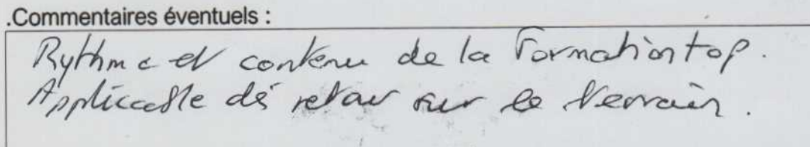 .Commentaires éventuels :
Rythme et contenu de la Formation top.
Applicable dès retour sur le terrain.